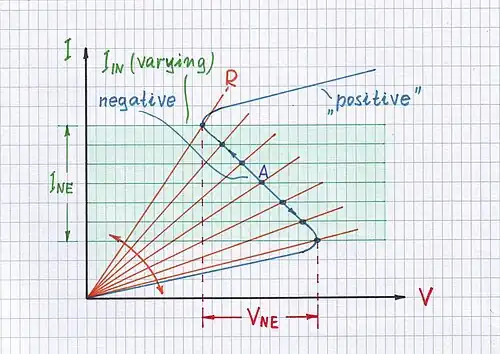 I
I_IN (varying)
R
negative
„positive”
A
I_NE
V
V_NE